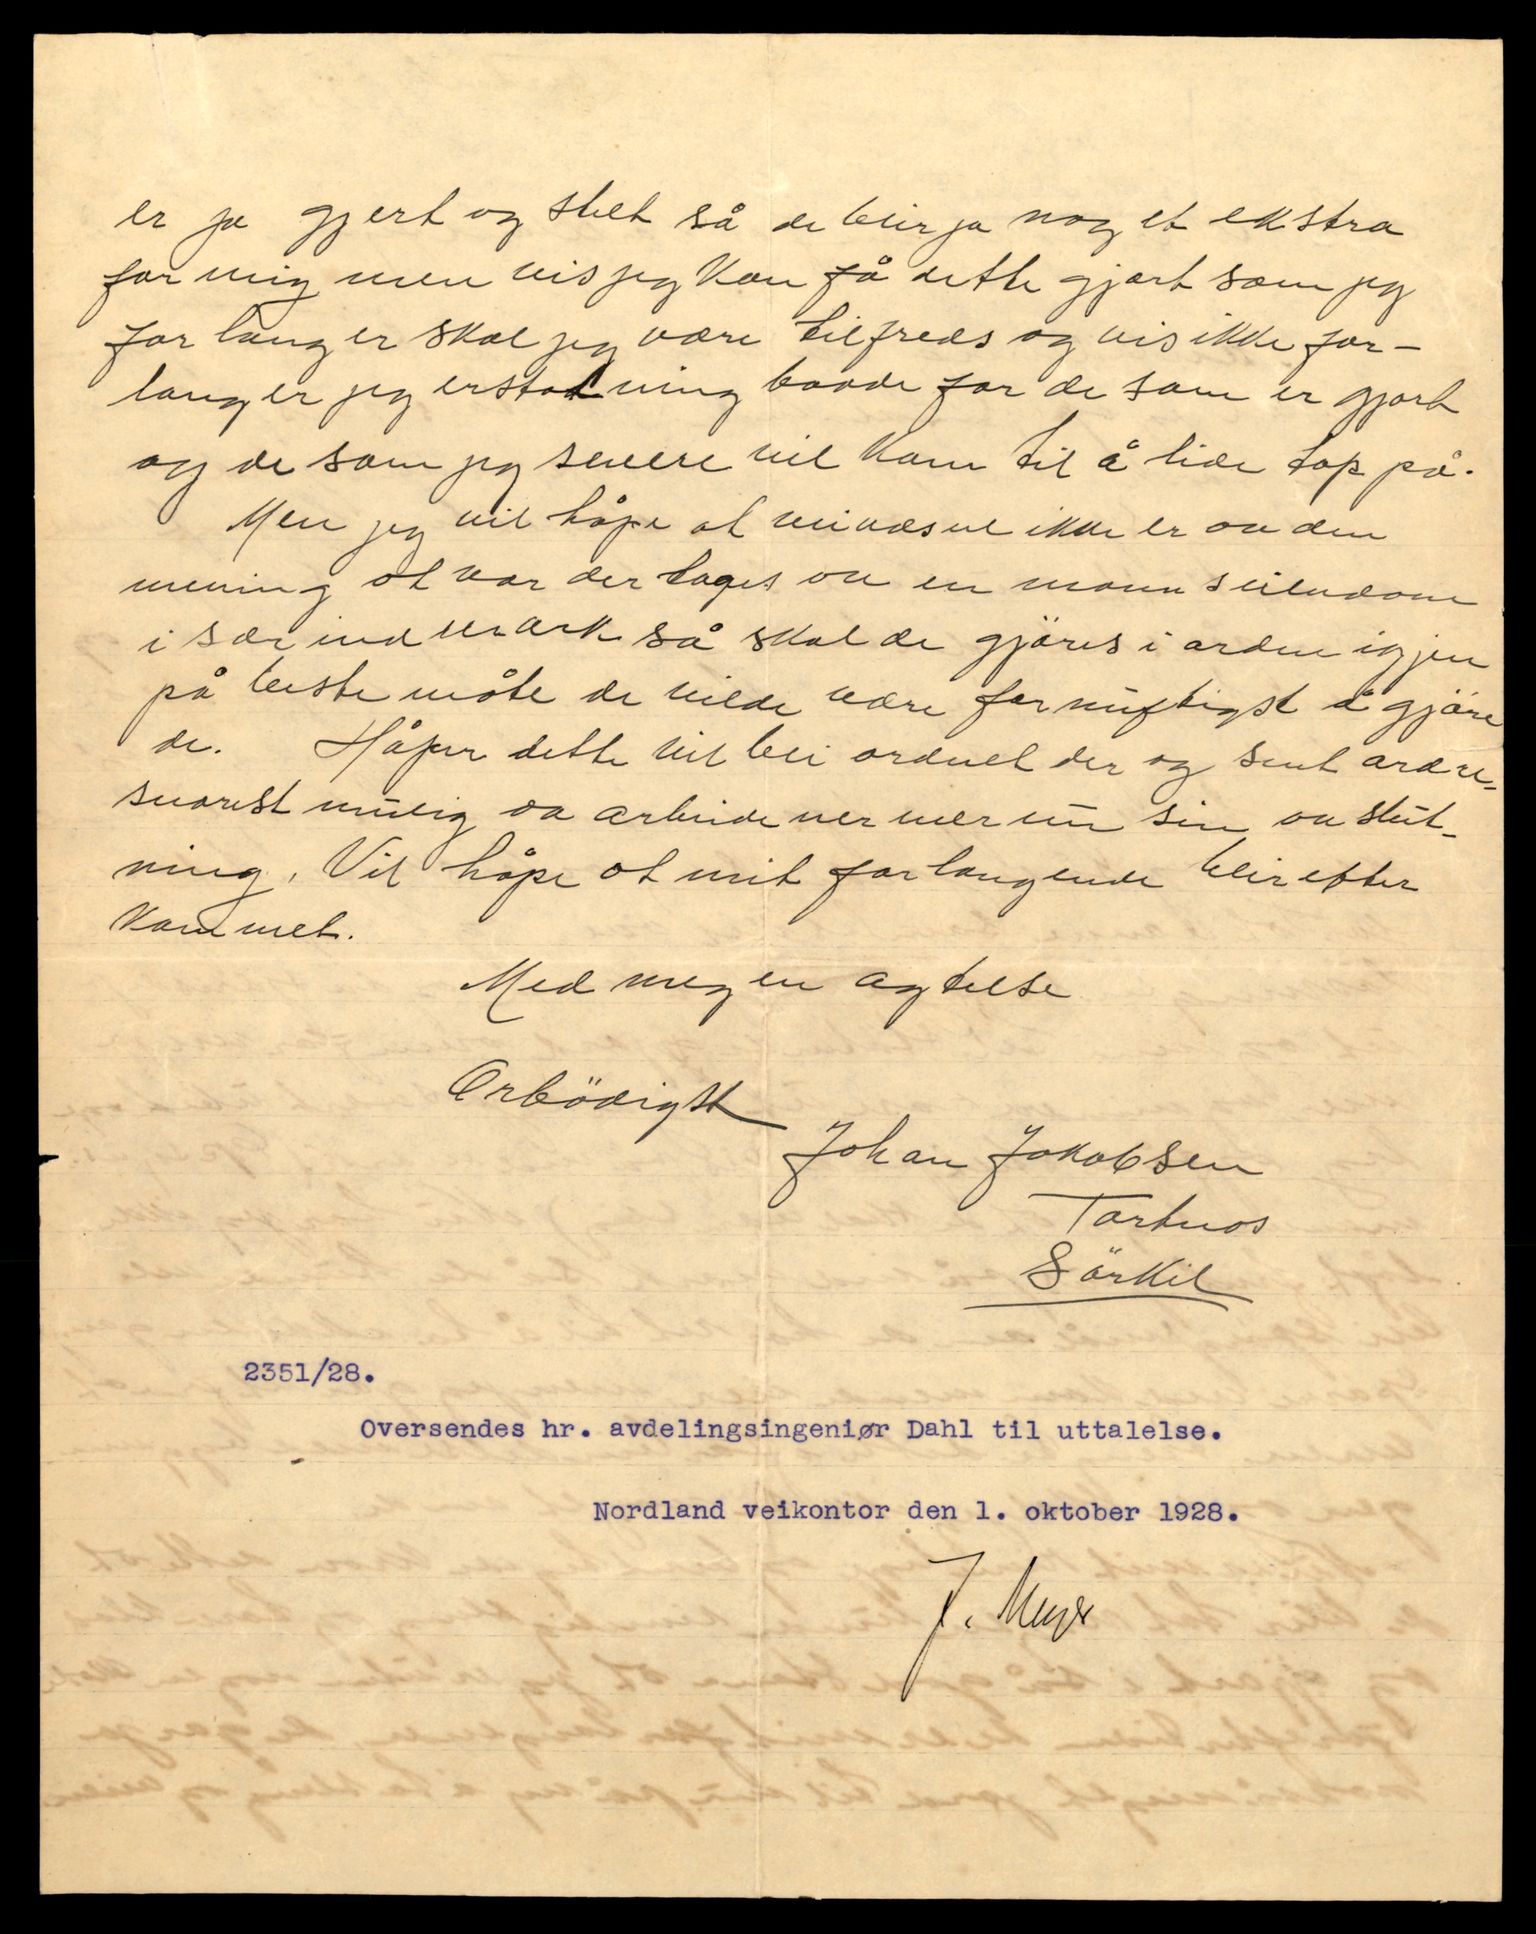 er ja gjert og stelt så de blir ja nog et ekstra
for mig men vis jeg kan få dette gjort som jeg
forlanger skal jeg være tilfreds og vis ikke for-
langer jeg erstatning baade for de som er gjort
og de som jeg senere vil kom til å lide tap på.
Men jeg vil håpe at veivæsnet ikke er av den
mening at var der tages av en mann seiendom
i sær indmark så skal de gjöres i orden igjen
på beste måte de vilde være fornuftigst å gjöre
de. Håper dette vil bli ordnet der og sent ordre
snarest mulig da arbeide ner mer nu sin avslut-
ning. Vil håpe at mit forlangende blir efter
kommet.
Med megen agtelse
Erbödigst
Johan Jakobsen
Tortnos
Sörkil
2351/28.
Oversendes hr. avdelingsingeniør Dahl til uttalelse.
Nordland veikontor den 1. oktober 1928.
J. Meyer